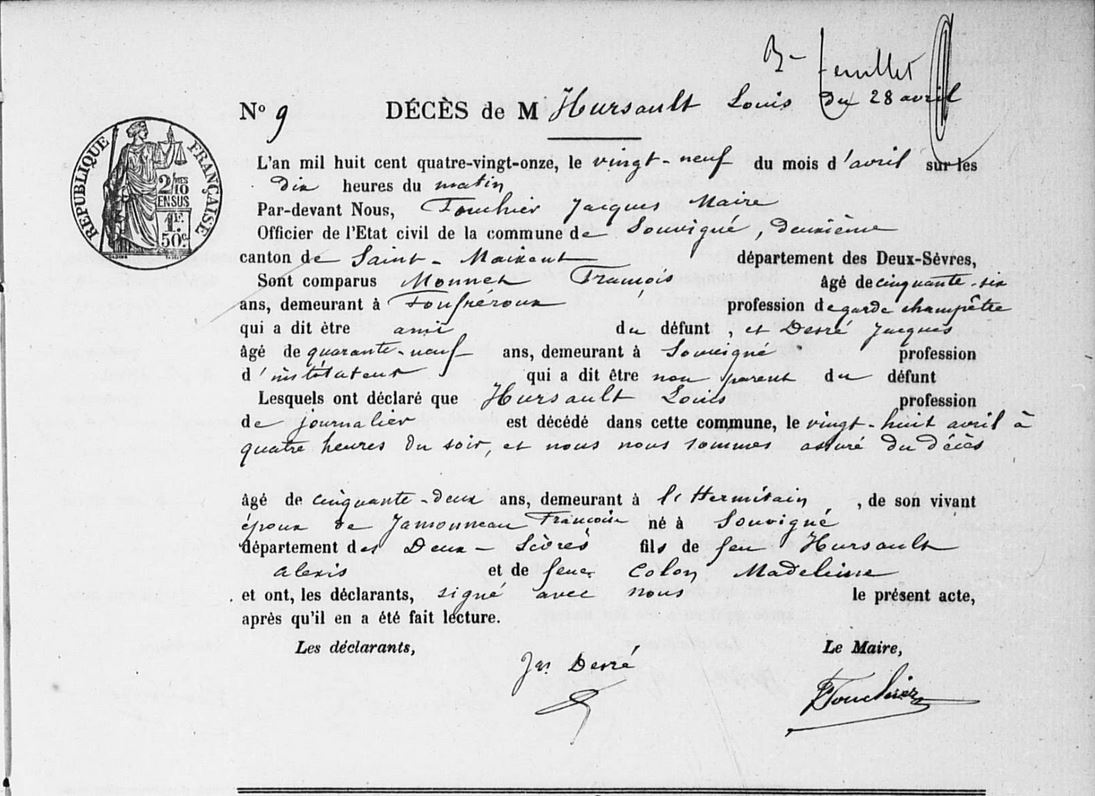 3e feuillet
N° 9 DÉCÈS de M Hursault Louis du 28 avril
RÉPUBLIQUE FRANÇAISE
2/10MES
EN SUS
1F.
50c.
L'an mil huit cent quatre-vingt-onze, le vingt-neuf du mois d'avril sur les
dix heures du matin
Par-devant Nous, Fouchier Jacques Maire
Officier de l'Etat civil de la commune de Souvigné, deuxième
canton de Saint-Maixent département des Deux-Sèvres,
Sont comparus Monnet François âgé de cinquante-six
ans, demeurant à profession de garde champêtre
qui a dit être ami du défunt, et Desré Jacques
âgé de quarante-neuf ans, demeurant à Souvigné profession
d'instituteur qui a dit être non parent du défunt
Lesquels ont déclaré que Hursault Louis profession
de journalier est décédé dans cette commune, le vingt-huit avril à
quatre heures du soir, et nous nous sommes assuré du décès
âgé de cinquante-deux ans, demeurant à l'Hermitain, de son vivant
époux de Jamonneau Françoise né à Souvigné
département des Deux-Sèvres fils de feu Hursault
Alexis et de feue Colon Madeleine
et ont, les déclarants, signé avec nous le présent acte,
après qu'il en a été fait lecture.
Les déclarants, Le Maire,
Jes Desré Fouchier